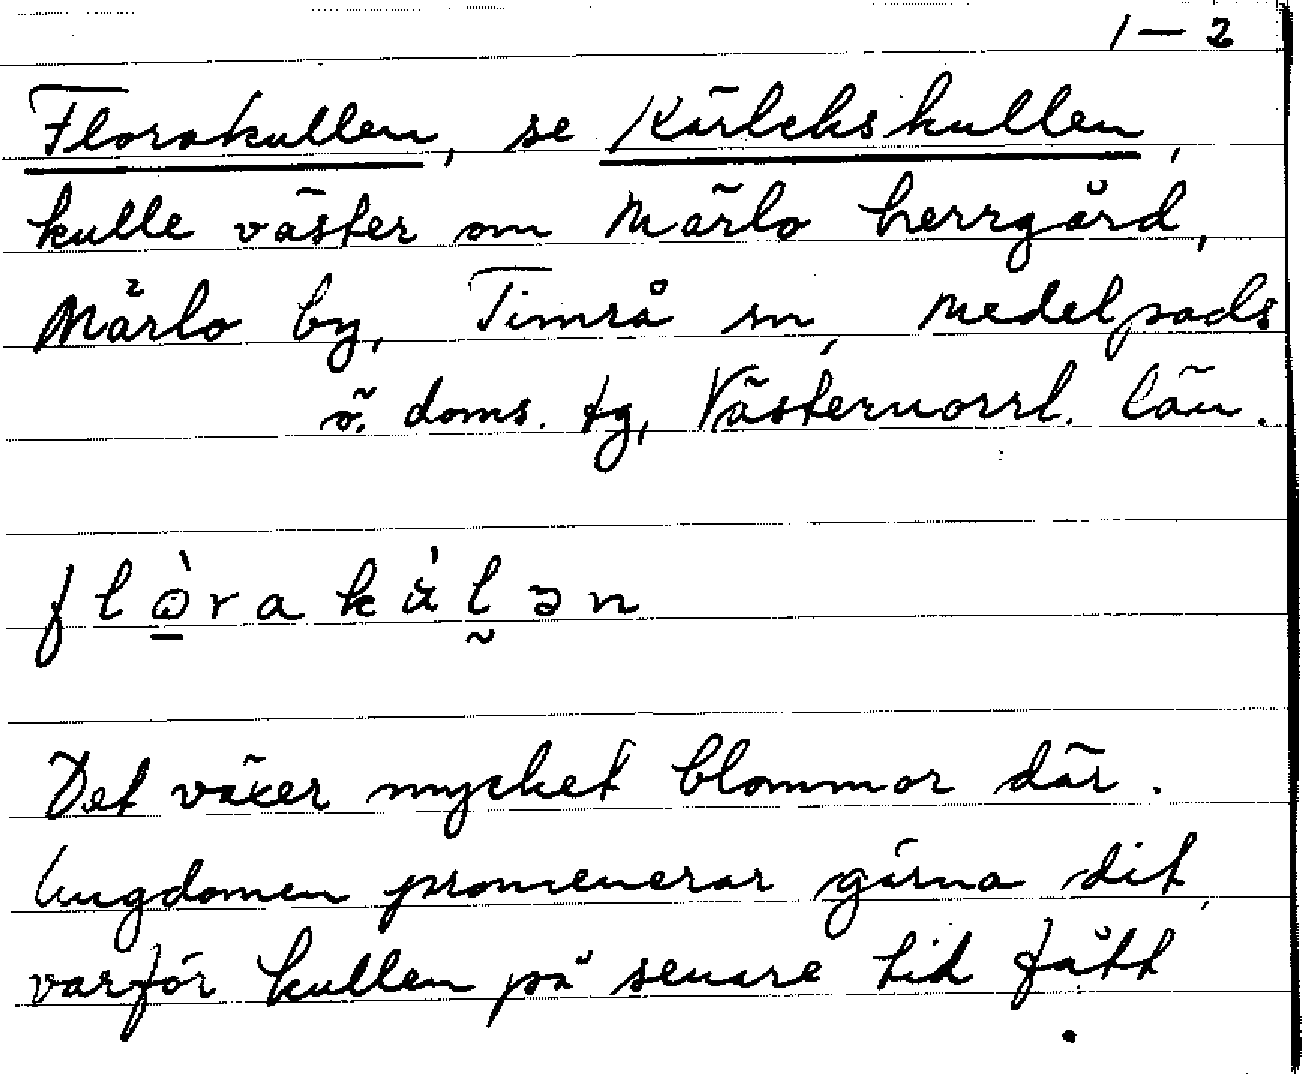 1 – 2
Florakullen, se Kärlekskullen,
kulle väster om Märlo herrgård,
Märlo by, Timrå sn, Medelpads
ö. doms. tg, Västernorrl. län.
Det växer mycket blommor där.
Ungdomen promenerar gärna dit,
varför kullen på senare tid fått